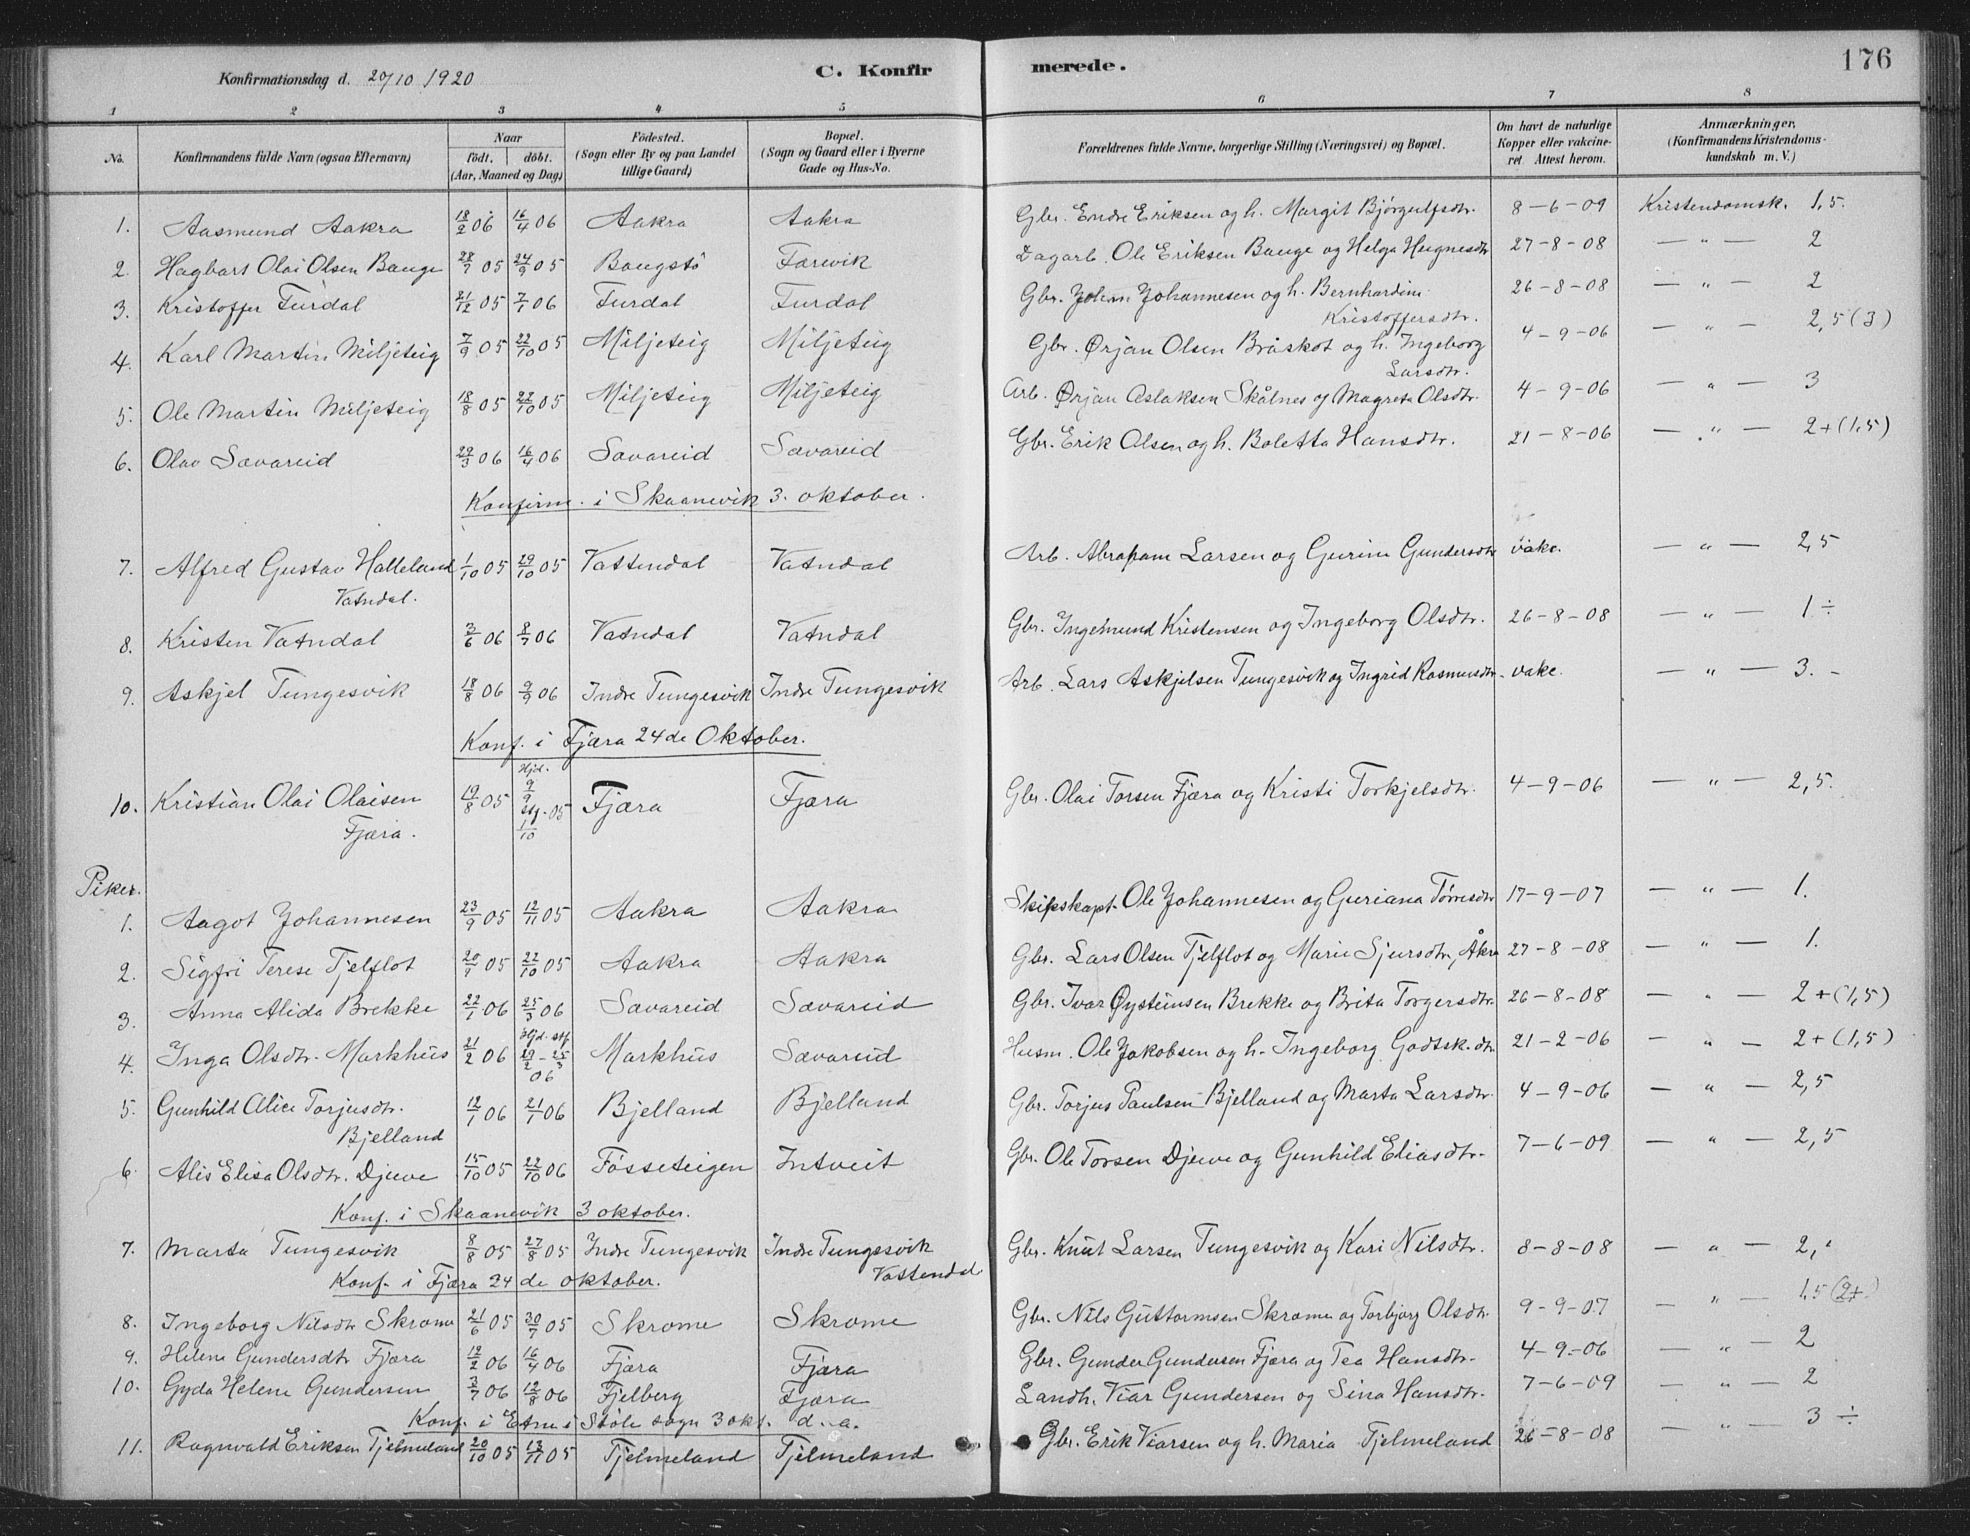 176
Konfirmationsdag d. 20/10 1920
C. Konfir merede.
1 2 3 4 5 6 7 8
No. Konfirmandens fulde Navn (ogsaa Efternavn) Naar födt. döbt. (Aar, Maaned og Dag) Födested. (Sogn eller By og paa Landet tillige Gaard) Bopæl. (Sogn og Gaard eller i Byerne Gade og Hus-No. Forældrenes fulde Navne, borgerlige Stilling (Næringsvei) og Bopæl. Om havt de naturlige Kopper eller vakcineret. Attest herom. Anmærkninger. (Konfirmandens Kristendomskundskab m. V.)
1. Aasmund Aakra 18/2 06 16/4 06 Aakra Aakra Gbr. Endre Eriksen og h. Margit Bjørgulfsdtr. 8-6-09 Kristendomsk. 1,5.
2. Hagbart Olai Olsen Bauge 28/7 05 24/9 05 Baugstö Farevik Dagarb. Ole Eriksen Bauge og Helga Hugnesdtr 27-8-08 — " — 2
3. Kristoffer Furdal 21/12 05 7/1 06 Furdal Furdal Gbr. Johan Johannesen og h. Bernhardine Kristoffersdtr. 26-8-08 — " — 2
4. Karl Martin Miljeteig 7/9 05 22/10 05 Miljeteig Miljeteig Gbr. Ørjan Olsen Bråskot og h. Ingeborg Larsdtr. 4-9-06 — " — 2,5 (3)
5. Ole Martin Miljeteig 18/8 05 22/10 05 Miljeteig Miljeteig Arb. Ørjan Aslaksen Skålnes og Magreta Olsdtr. 4-9-06 — " — 3
6. Olav Sævareid 29/3 06 16/4 06 Sævareid Sævareid Gbr. Erik Olsen og h. Boletta Hansdtr. 21-8-06 — " — 2+(1,5)
Konfirm. i Skaanevik 3. oktober.
7. Alfred Gustav Halleland Vatndal. 1/10 05 29/10 05 Vattendal Vatndal Arb. Abraham Larsen og Gurine Gundersdtr vake. — " — 2,5
8. Kristen Vatndal 3/6 06 8/7 06 Vatndal Vatndal Gbr. Ingemund Kristensen og Ingeborg Olsdtr. 26-8-08 — " — 1 ÷
9. Askjel Tungesvik 18/8 06 9/9 06 Indre Tungesvik Indre Tungesvik Arb. Lars Askjelsen Tungesvik og Ingrid Rasmusdtr. vake. — " — 3. -
Konf. i Fjæra 24de Oktober.
10. Kristian Olai Olaisen Fjæra. 19/8 05 Hjd. 9/9 stf. 05 1/10 Fjæra Fjæra Gbr. Olai Torsen Fjæra og Kristi Torkjelsdtr. 4-9-06 — " — 2,5.
Piker.
1. Aagot Johannesen 23/9 05 12/11 05 Aakra Aakra Skipskapt. Ole Johannesen og Guriana Tørresdtr 17-9-07 — " — 1.
2. Sigfri Terese Tjelflot 20/1 05 22/10 05 Aakra Aakra Gbr. Lars Olsen Tjelflot og Marie Sjursdtr, Åkra 27-8-08 — " — 1.
3. Anna Alida Brekke 22/1 06 25/3 06 Sævareid Sævareid Gbr. Ivar Øysteinsen Brekke og Brita Torgersdtr. 26-8-08 — " — 2+(1,5)
4. Inga Olsdtr. Markhus 21/2 06 Hjd. stf 29/2 - 25/3 06 Markhus Sævareid Husm. Ole Jakobsen og h. Ingeborg Godtsk.dtr. 21-2-06 — " — 2+(1,5)
5. Gunhild Alice Torjusdtr. Bjelland 12/1 06 21/1 06 Bjelland Bjelland Gbr. Torjus Paulsen Bjelland og Marta Larsdtr. 4-9-06 — " — 2,5
6. Alis Elisa Olsdtr. Djuve 15/10 05 22/10 06 Fosseteigen Intveit Gbr. Ole Torsen Djuve og Gunhild Eliasdtr. 7-6-09 — " — 2,5
Konf. i Skaanevik 3 oktober.
7. Marta Tungesvik 8/8 05 27/8 05 Indre Tungesvik Indre Tungesvik Vattendal Gbr. Knut Larsen Tungesvik og Kari Nilsdtr. 8-8-08 — " — 2,
Konf. i Fjæra 24 de oktober.
8. Ingeborg Nilsdtr Skrome 21/6 05 30/7 05 Skrome Skrome Gbr. Nils Guttormsen Skrome og Torbjørg Olsdtr. 9-9-07 — " — 1,5 (2+)
9. Helene Gundersdtr Fjæra 12/2 06 16/4 06 Fjæra Fjæra Gbr. Gunder Gundersen Fjæra og Tea Hansdtr. 4-9-06 " — 2
10. Gyda Helene Gundersen 3/7 06 12/8 06 Fjelberg Fjæra Landh. Viar Gundersen og Sina Hansdtr. 7-6-09 — " — 2
Konf. i Etne i Støle sogn 3 okt. d. a.
11. Ragnvald Eriksen Tjelmeland 20/10 05 12/11 05 Tjelmeland Tjelmeland Gbr. Erik Viarsen og h. Maria Tjelmeland 26-8-08 — " — 3 ÷